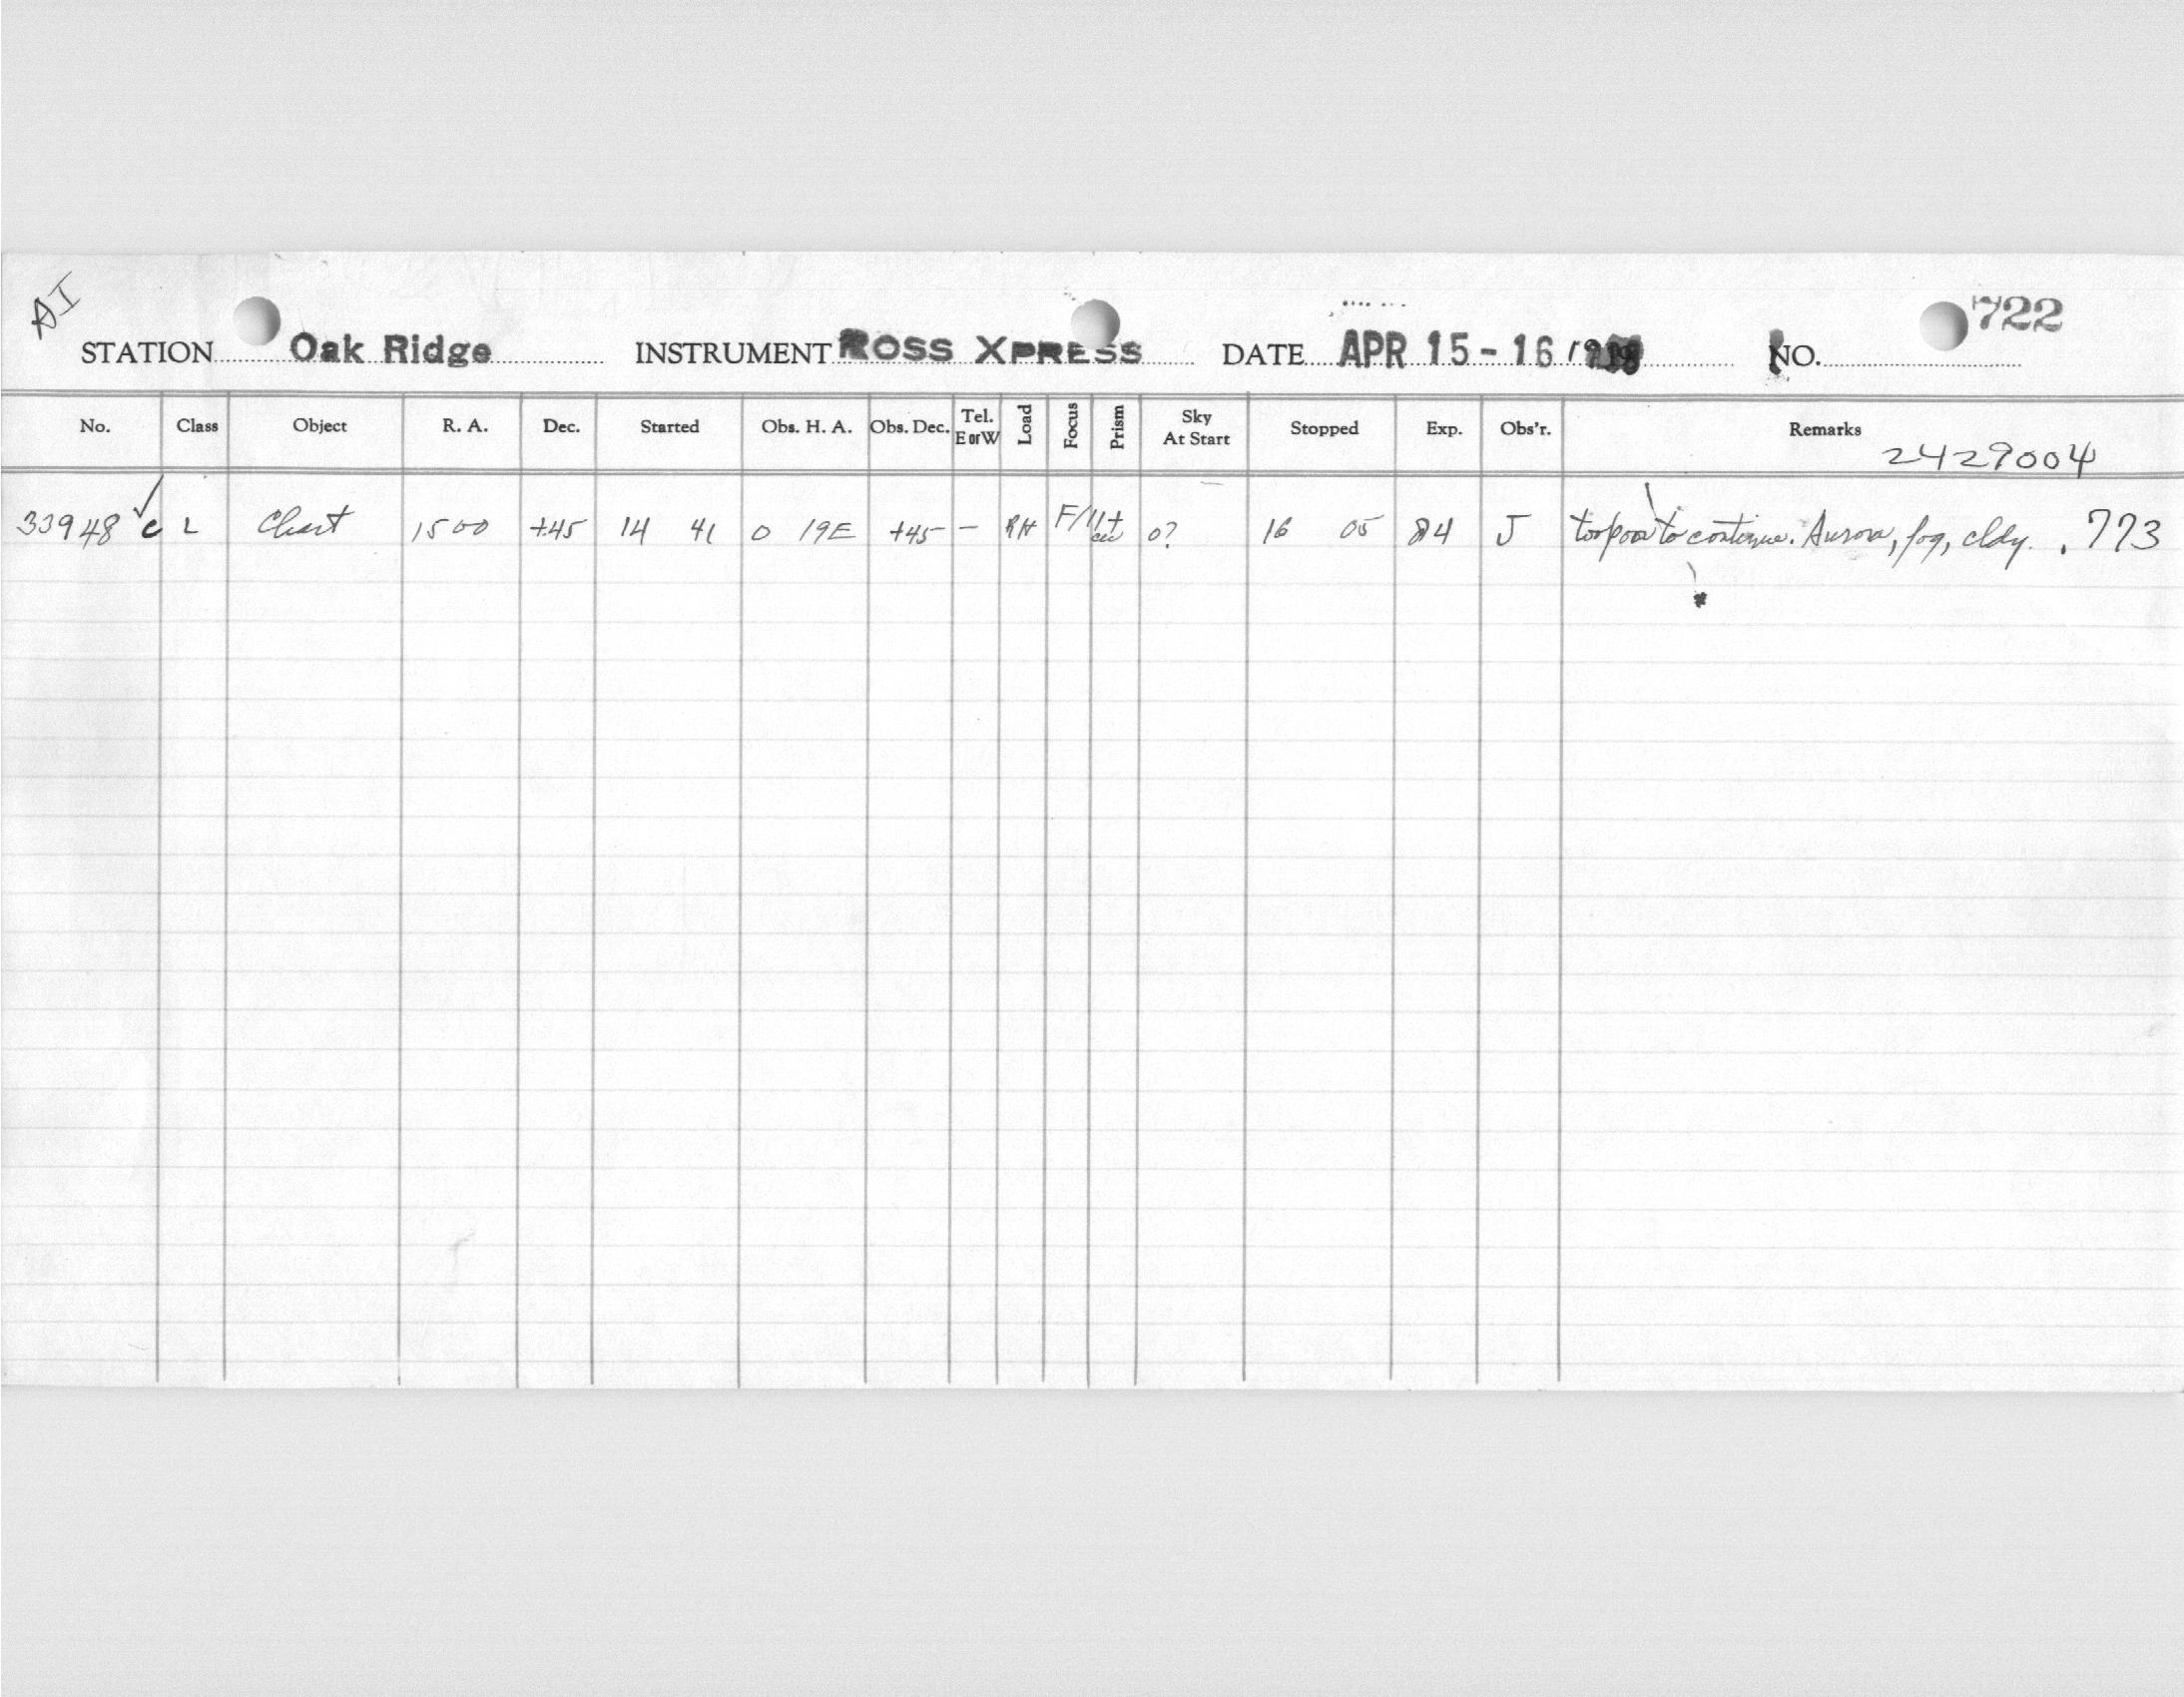 AI
722
STATION Oak Ridge INSTRUMENT ROSS XPRESS DATE APR 15-16 NO.
No. Class Object R. A. Dec. Started Obs. H. A. Obs. Dec. Tel. E or W Load Focus Prism Sky At Start Stopped Exp. Obs'r. Remarks
2429004
33948 c L Chart 15 00 +45 14 41 0 19E +45 - RH F/11+ 0? 16 05 84 J too poor to continue. Aurora, fog, cldy. .773